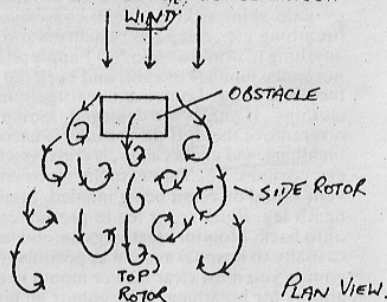 WIND
OBSTACLE
SIDE ROTOR
TOP
ROTOR
PLAN VIEW.